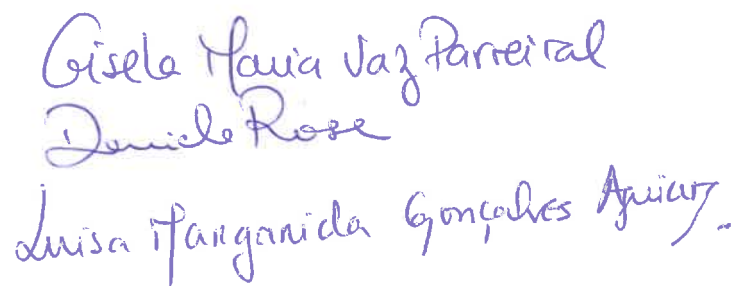 Gisela Maria Vaz Parreiral
Daniela Rosa
Luisa Margarida Gonçalves Aguiar